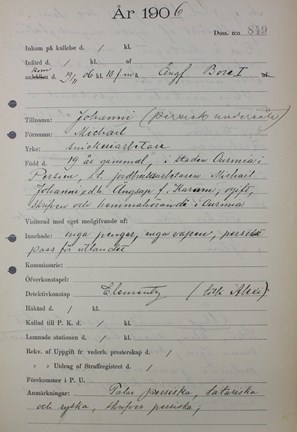 År 1906
Dom. n:o 849
Inkom på kallelse d. / kl.
Införd d. / kl. af
Kom 29/11 06 kl. 10 f.m. Ångf. Bore I
Tillnamn: Johanni (persisk undersåte)
Förnamn: Michail
Yrke: snickeriarbetare
Född d. 19 år gammal, i staden Ourmia i
Persien, af jordbruksarbetaren Michail
Johanni och f. Karami, ogift,
skrifven och hemmahörande i Ourmia
Visiterad med eget medgifvande af:
Innehade: inga pengar, inga vapen, persiskt
pass för utlandet
Kommissarie:
Öfverkonstapel:
Detektivkonstap (tolk Alexi).
Häktad d. / kl.
Kallad till P. K. d. / kl.
Lemnade stationen d. / kl.
Rekv. af Uppgift fr vederb. presterskap d. /
» » Utdrag af Straffregistret d. /
Förekommer i P. U.
Anmärkningar: Talar persiska, tatariska
och ryska, skrifver persiska,